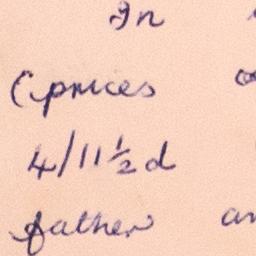 In
(prices
4/11½d
father an